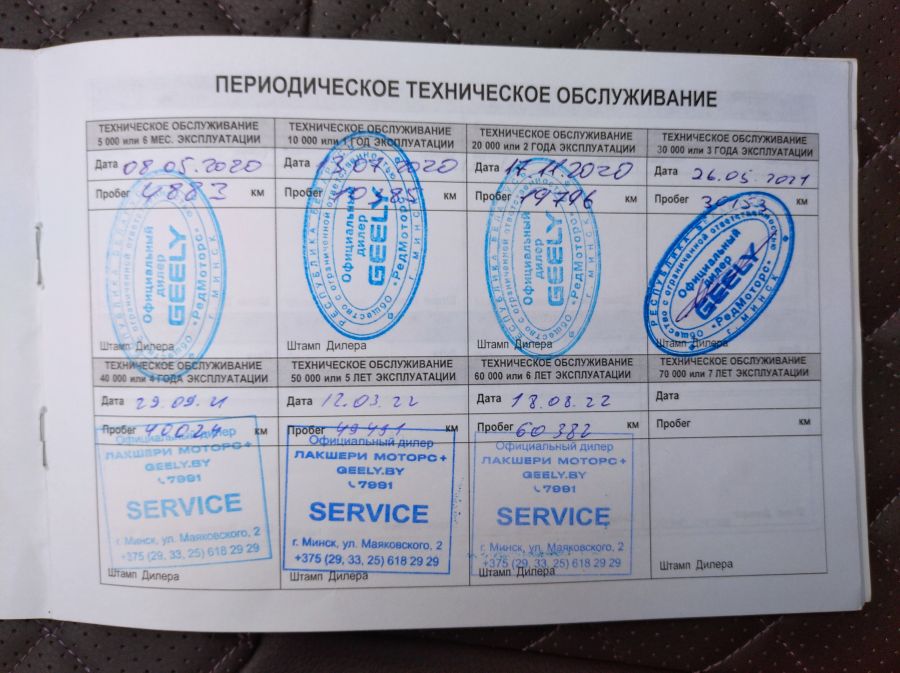 ПЕРИОДИЧЕСКОЕ ТЕХНИЧЕСКОЕ ОБСЛУЖИВАНИЕ
ТЕХНИЧЕСКОЕ ОБСЛУЖИВАНИЕ
5 000 или 6 МЕС. ЭКСПЛУАТАЦИИ
Дата 08.05.2020
Пробег 4883 км
РЕСПУБЛИКА БЕЛАРУСЬ
Общество с ограниченной ответственностью
Официальный
дилер
GEELY
«РедМоторс»
г. МИНСК
Штамп Дилера
ТЕХНИЧЕСКОЕ ОБСЛУЖИВАНИЕ
10 000 или 1 ГОД ЭКСПЛУАТАЦИИ
Дата 2020
Пробег км
РЕСПУБЛИКА БЕЛАРУСЬ
Общество с ограниченной ответственностью
Официальный
дилер
GEELY
«РедМоторс»
г. МИНСК
Штамп Дилера
ТЕХНИЧЕСКОЕ ОБСЛУЖИВАНИЕ
20 000 или 2 ГОДА ЭКСПЛУАТАЦИИ
Дата 17.11.2020
Пробег 19796 км
РЕСПУБЛИКА БЕЛАРУСЬ
Общество с ограниченной ответственностью
Официальный
дилер
GEELY
«РедМоторс»
г. МИНСК
Штамп Дилера
ТЕХНИЧЕСКОЕ ОБСЛУЖИВАНИЕ
30 000 или 3 ГОДА ЭКСПЛУАТАЦИИ
Дата 26.05.2021
Пробег 30153 км
РЕСПУБЛИКА БЕЛАРУСЬ
Общество с ограниченной ответственностью
Официальный
дилер
GEELY
«РедМоторс»
г. МИНСК
Штамп Дилера
ТЕХНИЧЕСКОЕ ОБСЛУЖИВАНИЕ
40 000 или 4 ГОДА ЭКСПЛУАТАЦИИ
Дата 29.09.21
Пробег 40024 км
Официальный дилер
ЛАКШЕРИ МОТОРС+
GEELY.BY
7991
SERVICE
г. Минск, ул. Маяковского, 2
+375 (29, 33, 25) 618 29 29
Штамп Дилера
ТЕХНИЧЕСКОЕ ОБСЛУЖИВАНИЕ
50 000 или 5 ЛЕТ ЭКСПЛУАТАЦИИ
Дата 12.03.22
Пробег 49491 км
Официальный дилер
ЛАКШЕРИ МОТОРС+
GEELY.BY
7991
SERVICE
г. Минск, ул. Маяковского, 2
+375 (29, 33, 25) 618 29 29
Штамп Дилера
ТЕХНИЧЕСКОЕ ОБСЛУЖИВАНИЕ
60 000 или 6 ЛЕТ ЭКСПЛУАТАЦИИ
Дата 18.08.22
Пробег 60382 км
Официальный дилер
ЛАКШЕРИ МОТОРС+
GEELY.BY
7991
SERVICE
г. Минск, ул. Маяковского, 2
+375 (29, 33, 25) 618 29 29
Штамп Дилера
ТЕХНИЧЕСКОЕ ОБСЛУЖИВАНИЕ
70 000 или 7 ЛЕТ ЭКСПЛУАТАЦИИ
Дата
Пробег км
Штамп Дилера